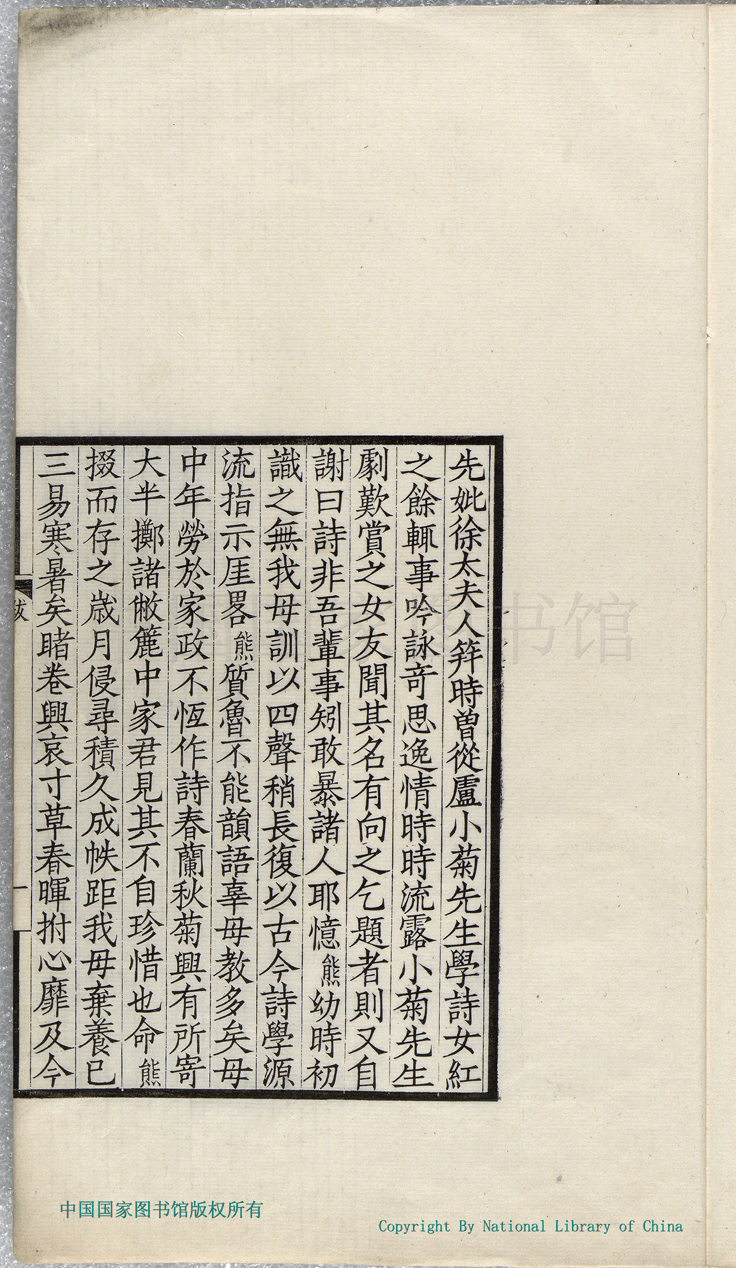 先妣徐太夫人筓時曽從盧小菊先生學詩女紅
之餘輒事吟詠竒思逸情時時流露小菊先生
劇歎賞之女友聞其名有向之乞題者則又自
謝曰詩非吾輩事矧敢暴諸人耶憶熊幼時初
識之無我母訓以四聲稍長復以古今詩學源
流指示厓畧熊質魯不能韻語辜母教多矣母
中年勞於家政不恆作詩春蘭秋菊興有所寄
大半擲諸敝簏中家君見其不自珍惜也命熊
掇而存之嵗月侵尋積久成帙距我母棄養已
三易寒暑矣睹卷興哀寸草春暉拊心靡及今
跋
一
中国国家图书馆版权所有
Copyright By National Library of China